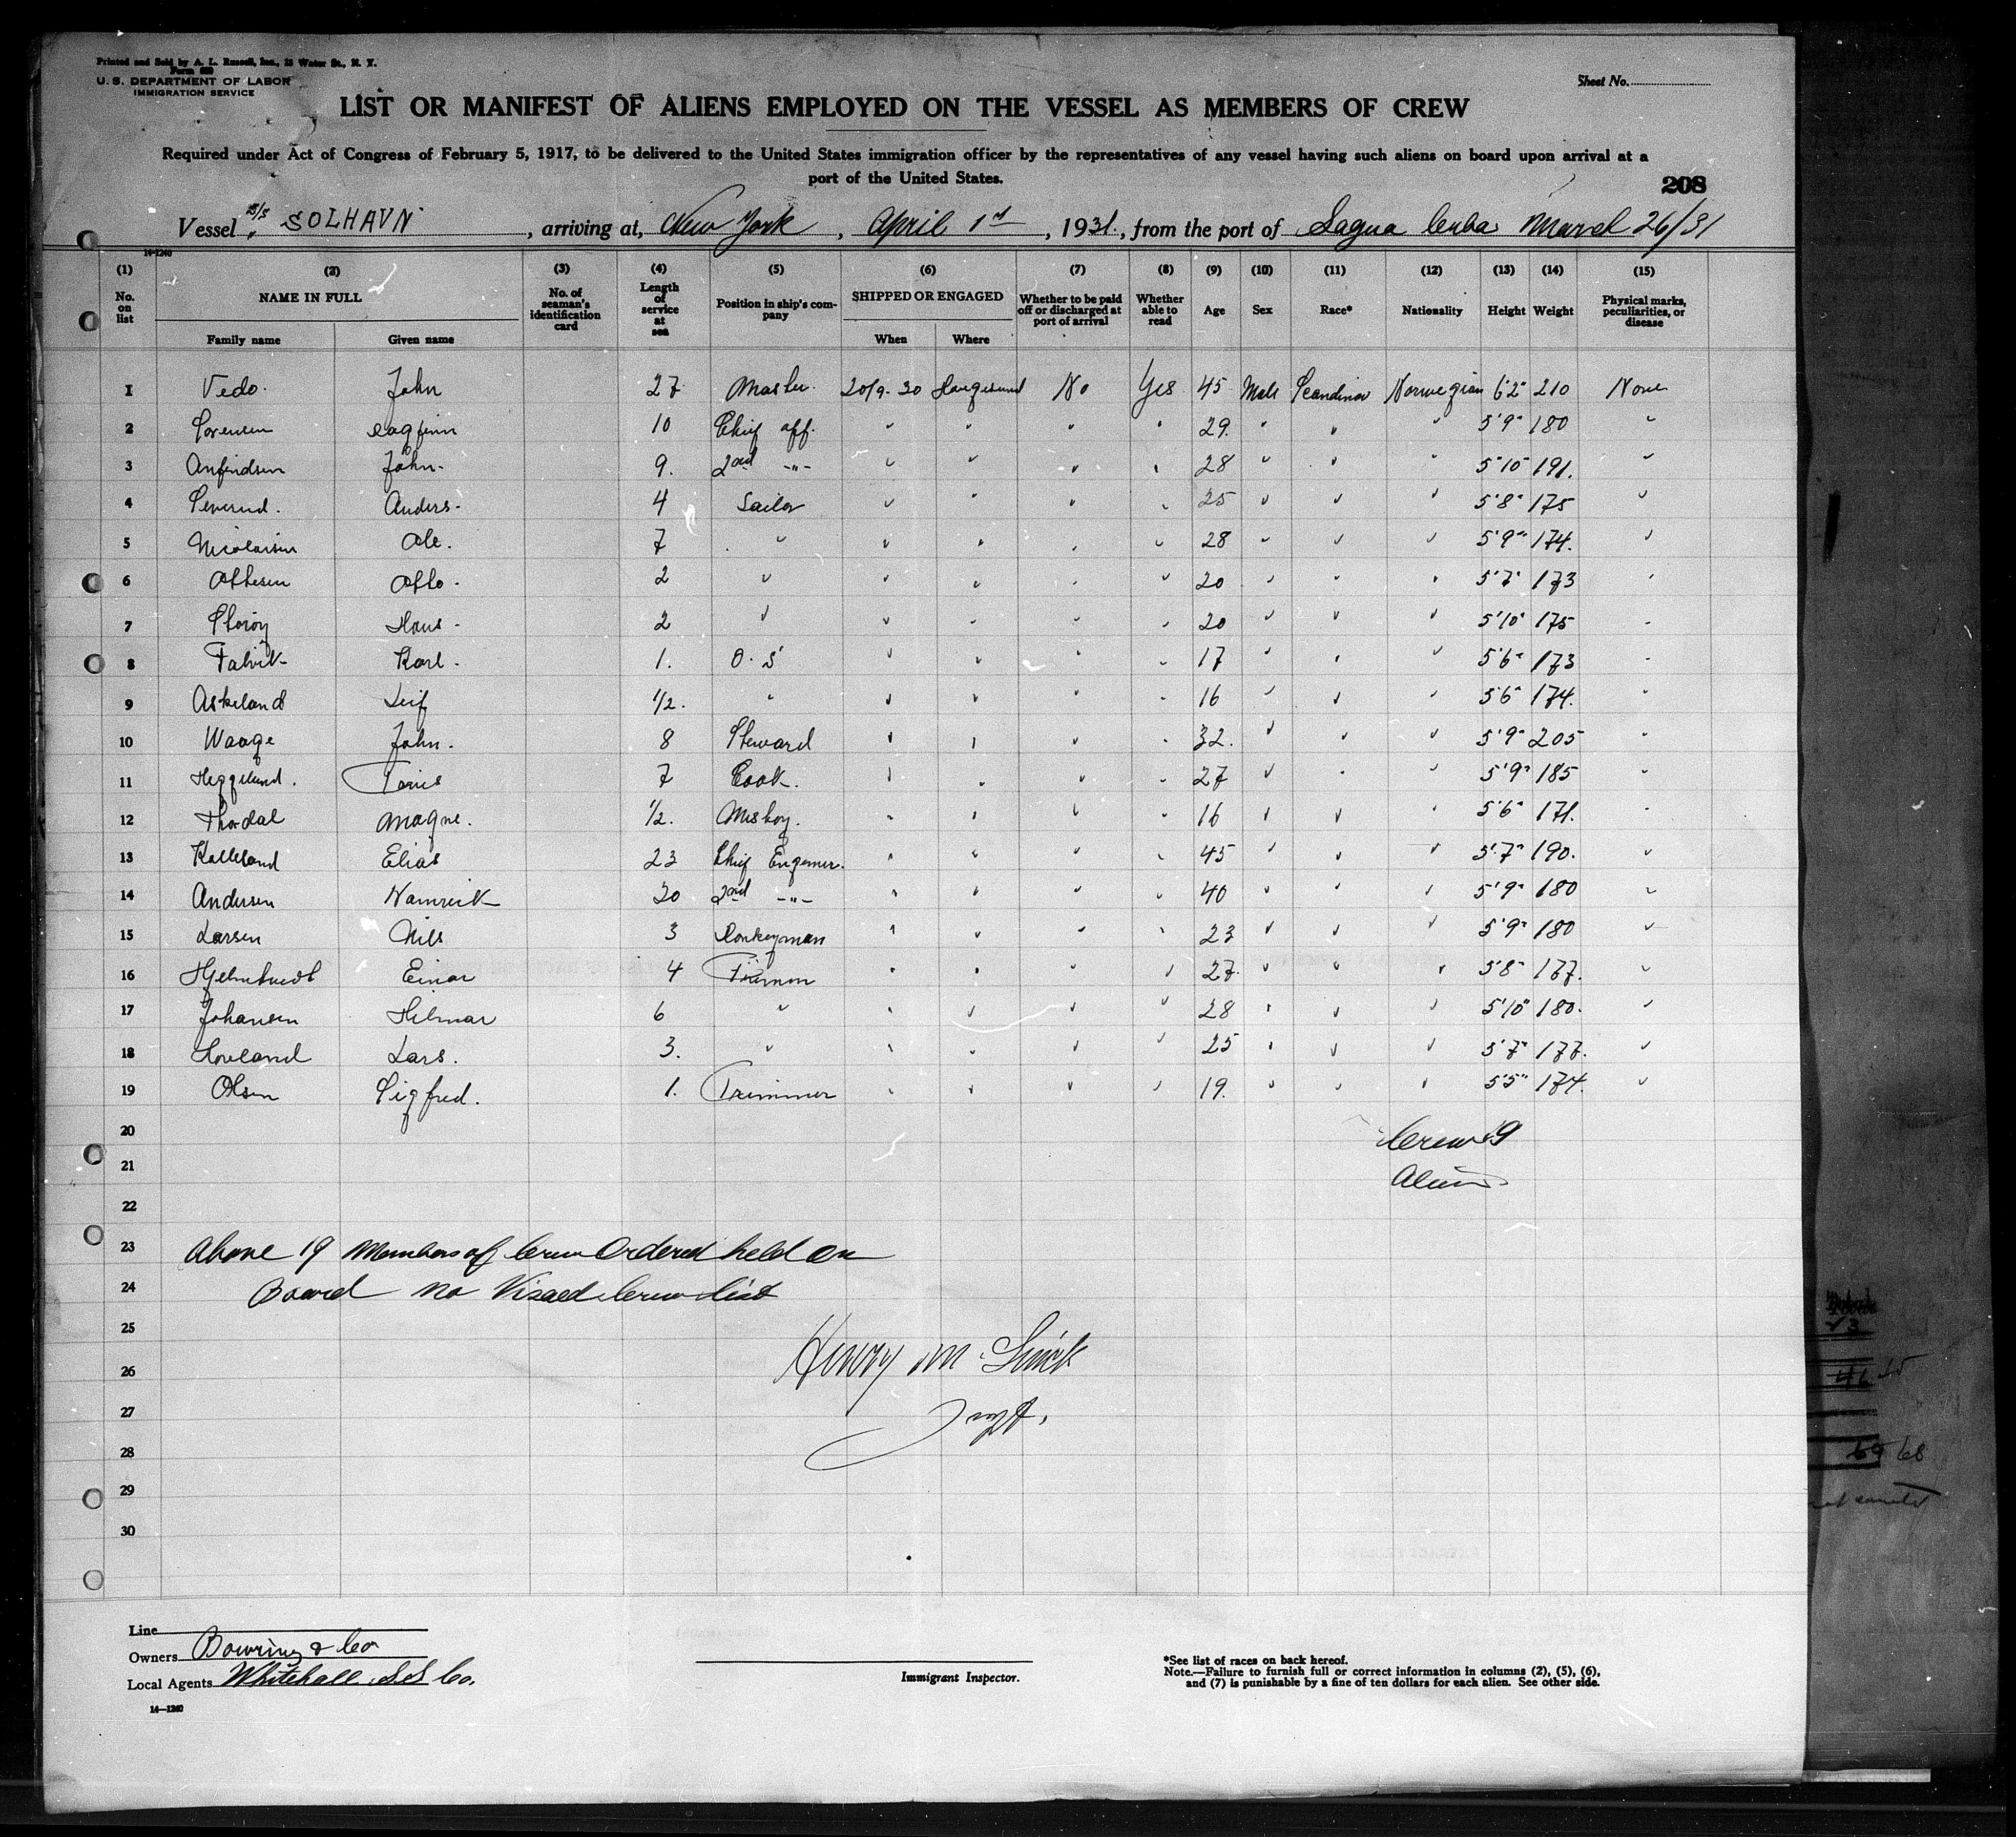 Printed and Sold by A. L. Russell, Inc., 15 Water St., N. Y.
U. S. DEPARTMENT OF LABOR
IMMIGRATION SERVICE
Sheet No.
LIST OR MANIFEST OF ALIENS EMPLOYED ON THE VESSEL AS MEMBERS OF CREW
Required under Act of Congress of February 5, 1917, to be delivered to the United States immigration officer by the representatives of any vessel having such aliens on board upon arrival at a
port of the United States.
208
Vessel S/S SOLHAVN, arriving at, New York, April 1st, 1931., from the port of Sagua Cuba March 26/31
14-1240
(1) (2) (3) (4) (5) (6) (7) (8) (9) (10) (11) (12) (13) (14) (15)
No. on list NAME IN FULL Family name Given name No. of seaman's identification card Length of service at sea Position in ship's company SHIPPED OR ENGAGED When Where Whether to be paid off or discharged at port of arrival Whether able to read Age Sex Race* Nationality Height Weight Physical marks, peculiarities, or disease
1 Vedo. John 27 Master. 20/9-30 Haugesund No Yes 45 Male Scandinav Norwegian 6'2" 210 None
2 Sorensen 10 Chief off. " " " " 29. " " " 5'9" 180 "
3 Anfindsen John- 9. 2nd -"- " " " " 28 " " " 5'10" 191. "
4 Anders- 4 Sailor " " " " 25 " " " 5'8" 175 "
5 Nicolaisen Ole. 7 " " " " " 28 " " " 5'9" 174. "
6 Ottesen Otto- 2 " " " " " 20 " " " 5'7" 173 "
7 Storoy Hans- 2 " " " " " 20 " " " 5'10" 175 "
8 Karl. 1. O. S " " " " 17 " " " 5'6" 173 "
9 Askeland Leif 1/2. " " " " " 16 " " " 5'6" 174. "
10 Waage John. 8 Steward " " " " 32. " " " 5'9" 205 "
11 7 Cook. " " " " 27 " " " 5'9" 185 "
12 Thordal Magne. 1/2. Mesboy. " " " " 16 " " " 5'6" 171. "
13 Elias 23 Chief Engeneer. " " " " 45 " " " 5'7" 190. "
14 Andersen 20 2nd -"- " " " " 40 " " " 5'9" 180 "
15 Larsen Nils 3 Donkeyman " " " " 23 " " " 5'9" 180 "
16 Einar 4 Fireman " " " " 27. " " " 5'8" 177. "
17 Johansen Hilmar 6 " " " " " 28 " " " 5'10" 180. "
18 Hoveland Lars. 3. " " " " " 25 " " " 5'7" 177. "
19 Olsen Sigfred. 1. Trimmer " " " " 19. " " " 5'5" 174. "
20 Crew 19
21 Aliens
22
23 Above 19 Members of Crew Ordered held on
24 Board No Visaed Crew list
25
26 Henry M.
27
28
29
30
Line
Owners Bowring & Co
Local Agents Whitehall S S Co.
14-1240
Immigrant Inspector.
*See list of races on back hereof.
Note.—Failure to furnish full or correct information in columns (2), (5), (6),
and (7) is punishable by a fine of ten dollars for each alien. See other side.